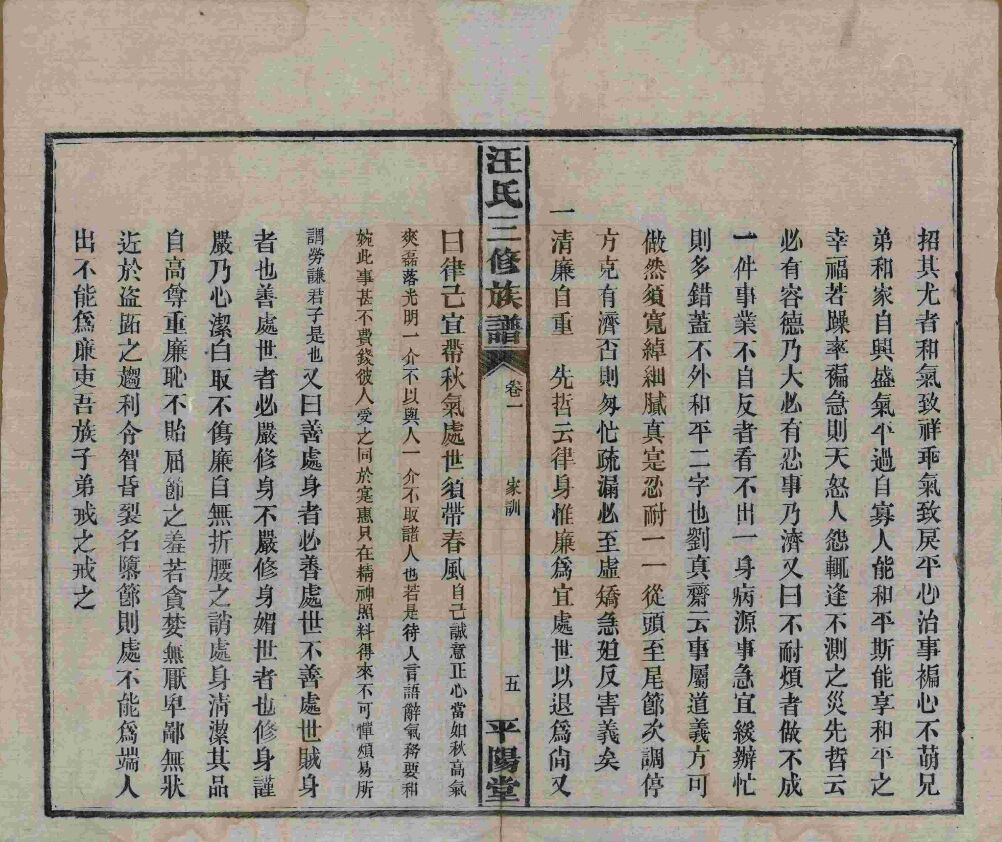 招其尤者和氣致祥乖氣致戾平心治事褊心不萌兄
弟和家自興盛氣平過自寡人能和平斯能享和平之
幸福若躁率褊急則天怒人怨輒逢不測之災先哲云
必有容德乃大必有忍事乃濟又曰不耐煩者做不成
一件事業不自反者看不出一身病源事急宜緩辦忙
則多錯蓋不外和平二字也劉真齋云事屬道義方可
做然須寬綽細膩真寔忍耐一一從頭至尾節次調停
方克有濟否則匆忙疏漏必至虛矯急廹反害義矣
一清廉自重　先哲云律身惟廉爲宜處世以退爲尙又
汪氏三修族譜　卷一　家訓　五　平陽堂
曰律己宜帶秋氣處世須帶春風自己誠意正心當如秋高氣
爽磊落光明一介不以與人一介不取諸人也若是待人言語辭氣務要和
婉此事甚不費錢彼人愛之同於寔惠只在精神照料得來不可憚煩易所
謂勞謙君子是也又曰善處身者必善處世不善處世賊身
者也善處世者必嚴修身不嚴修身媚世者也修身謹
嚴乃心潔白取不傷廉自無折腰之誚處身清潔其品
自高尊重廉恥不貽屈節之羞若貪婪無厭卑鄙無狀
近於盜跖之趨利令智昏裂名隳節則處不能爲端人
出不能爲廉吏吾族子弟戒之戒之